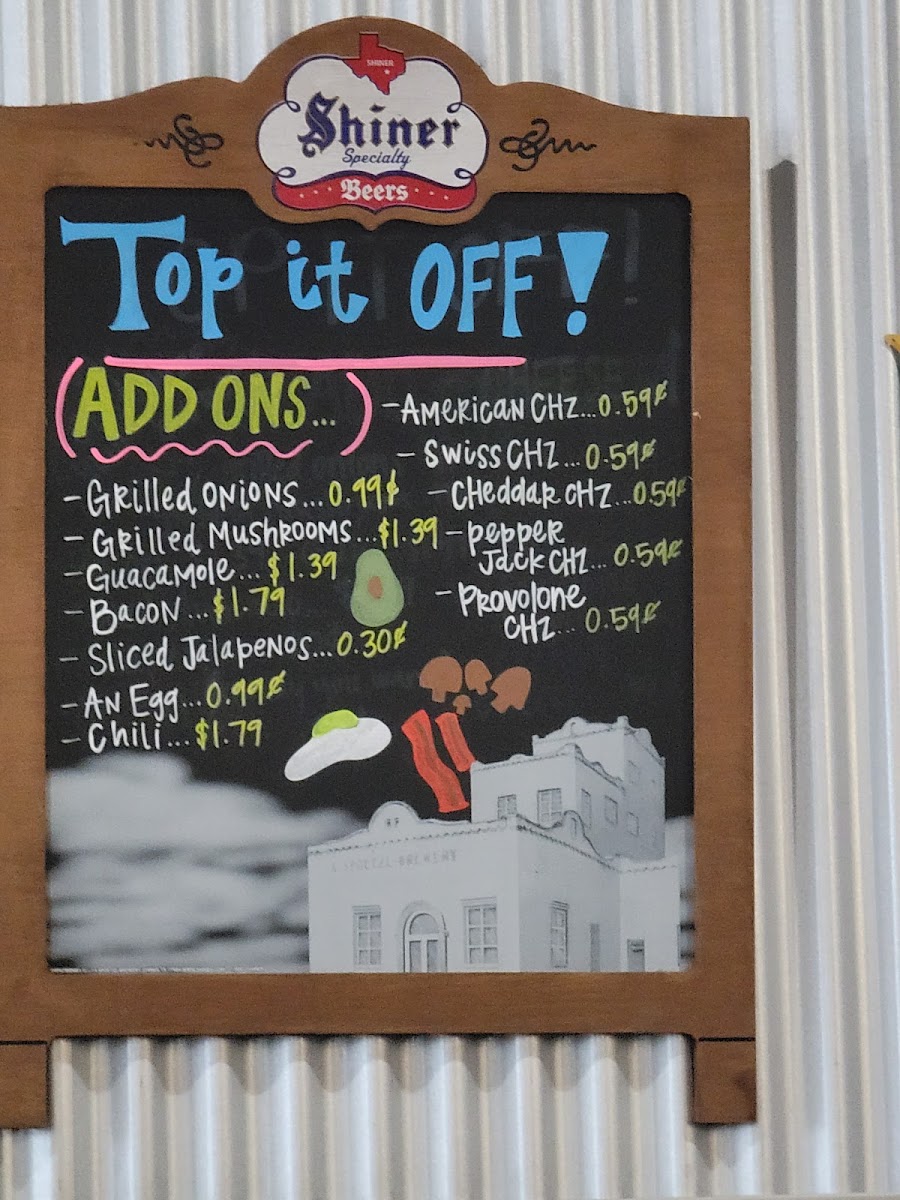 SHINER
Shiner
Specialty
Beers
Top it OFF!
(ADD ONS...)
- Grilled ONIONS...0.99¢
- Grilled MUSHROOMS...$1.39
- GUACAMOLE...$1.39
- BACON...$1.79
- Sliced Jalapenos...0.30¢
- AN Egg...0.99¢
- Chili...$1.79
- AMERICAN CHZ...0.59¢
- SWISS CHZ...0.59¢
- CHeddar CHZ...0.59¢
- pepper
Jack CHZ... 0.59¢
- Provolone
CHZ... 0.59¢